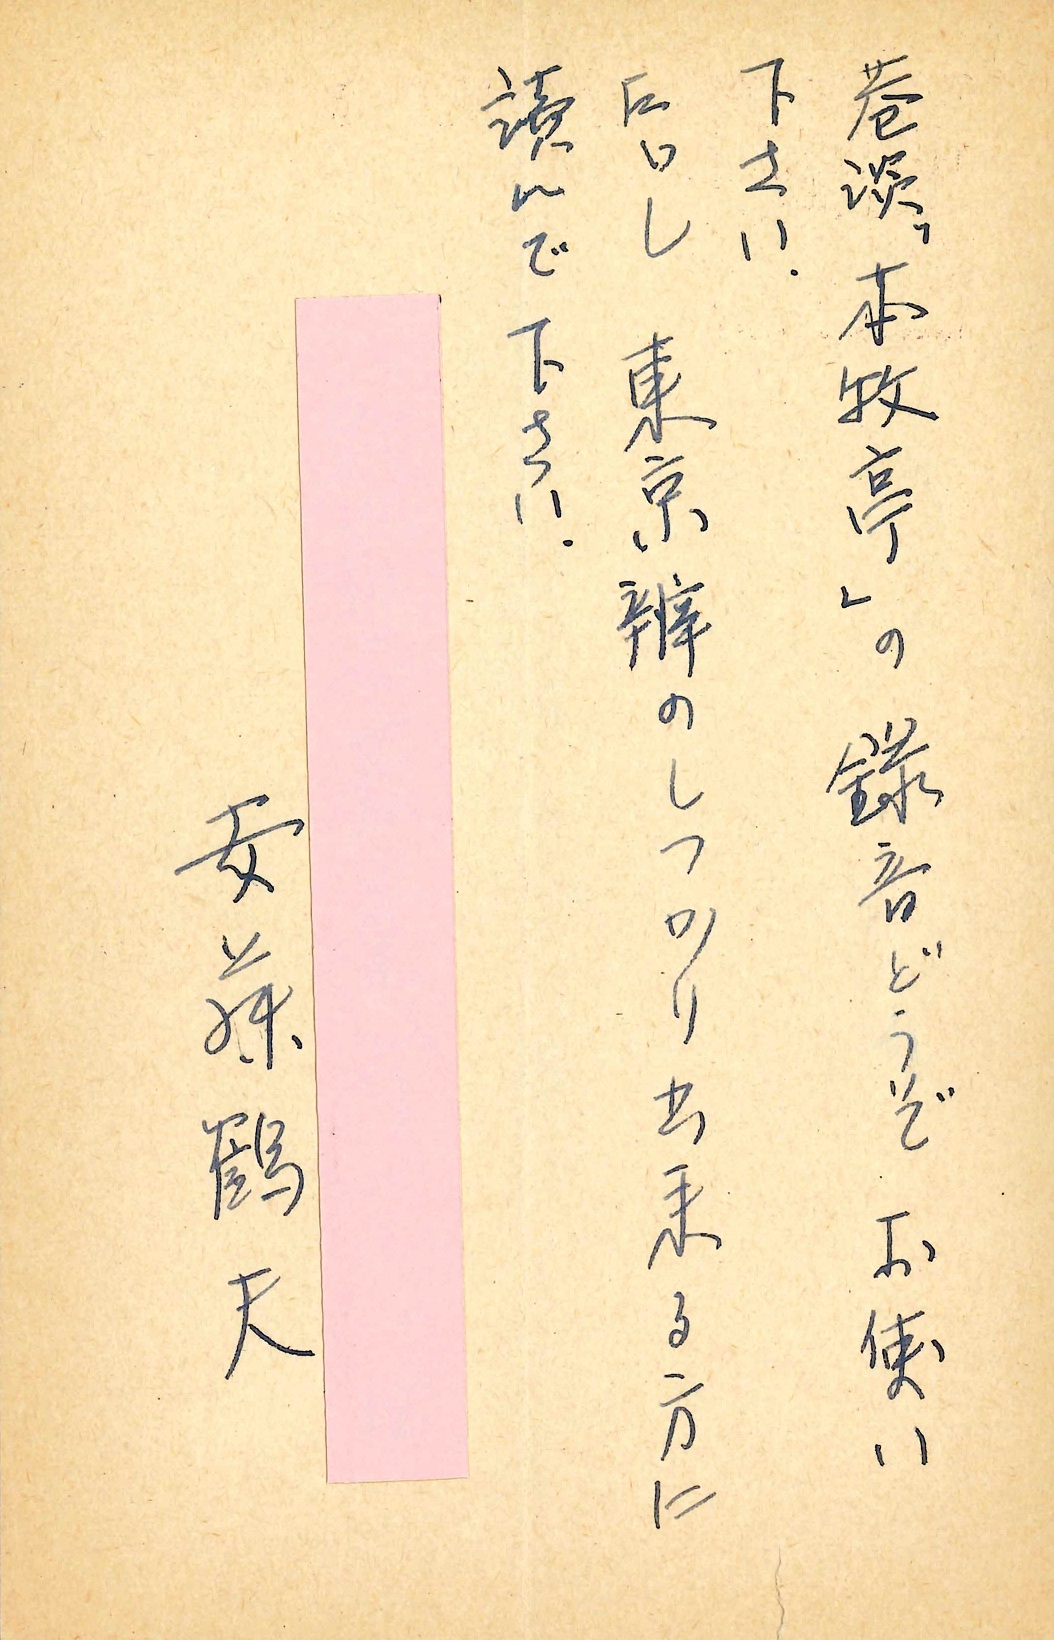 巷淡「本牧亭」の録音どうぞお使い
下さい.
但し 東京辨のしつかり出来る方に
讀んで下さい.
安藤鶴夫